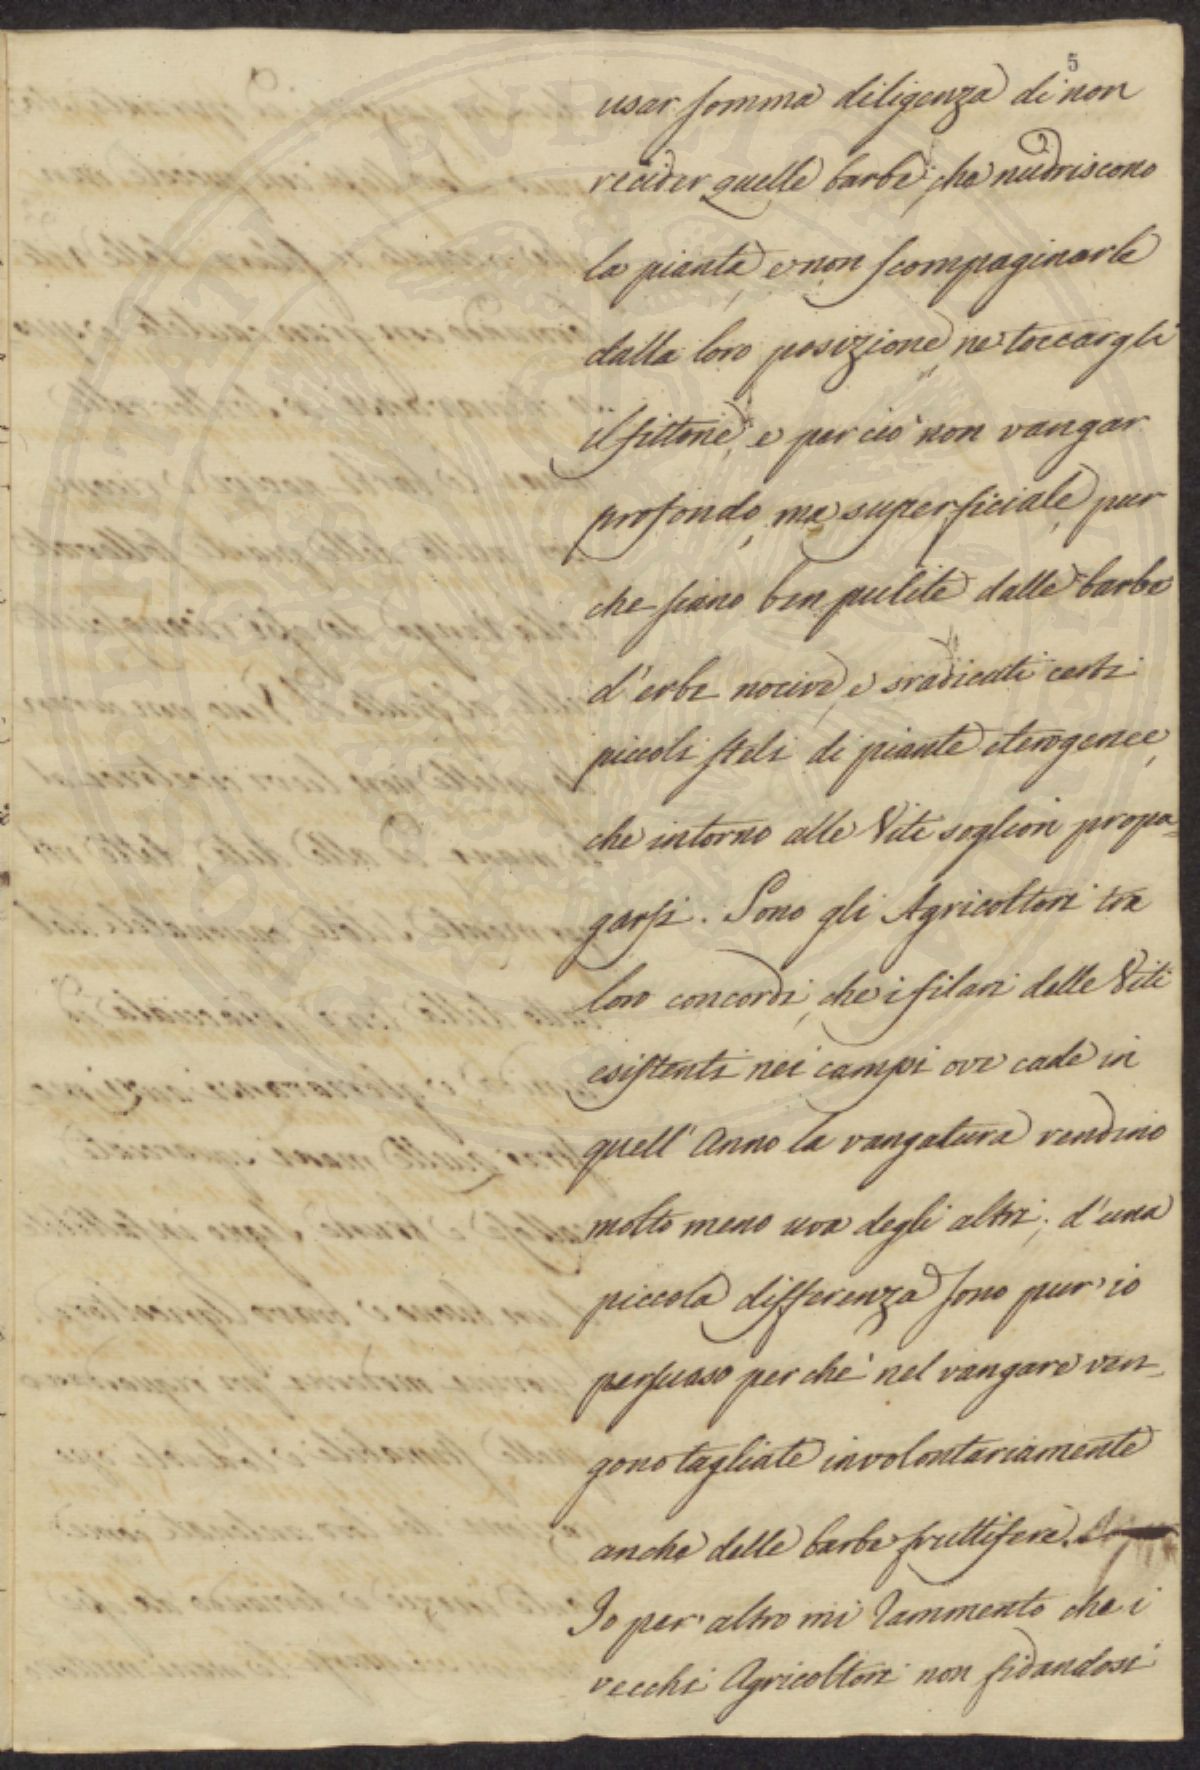 5
usar somma diligenza di non
recider quelle barbe, che nudriscono
la pianta e non scompaginarle
dalla loro posizione, ne toccargli
il fittone, e per ciò non vangar
profondo, ma superficiale, pur
che siano ben pulite dalle barbe
d'erbe nocive, e sradicati certi
piccoli steli di piante eterogenee,
che intorno alle Vite soglion propa=
garsi. Sono gli Agricoltori tra
loro concordi, che i filari delle Viti
esistenti nei campi ove cade in
quell' Anno la vangatura rendino
molto meno uva degli altri; d'una
piccola differenza sono pur' io
persuaso perchè nel vangare ven-
gono tagliate involontariamente
anche delle barbe fruttifere.
Io per altro mi rammento che i
vecchi Agricoltori non fidandosi